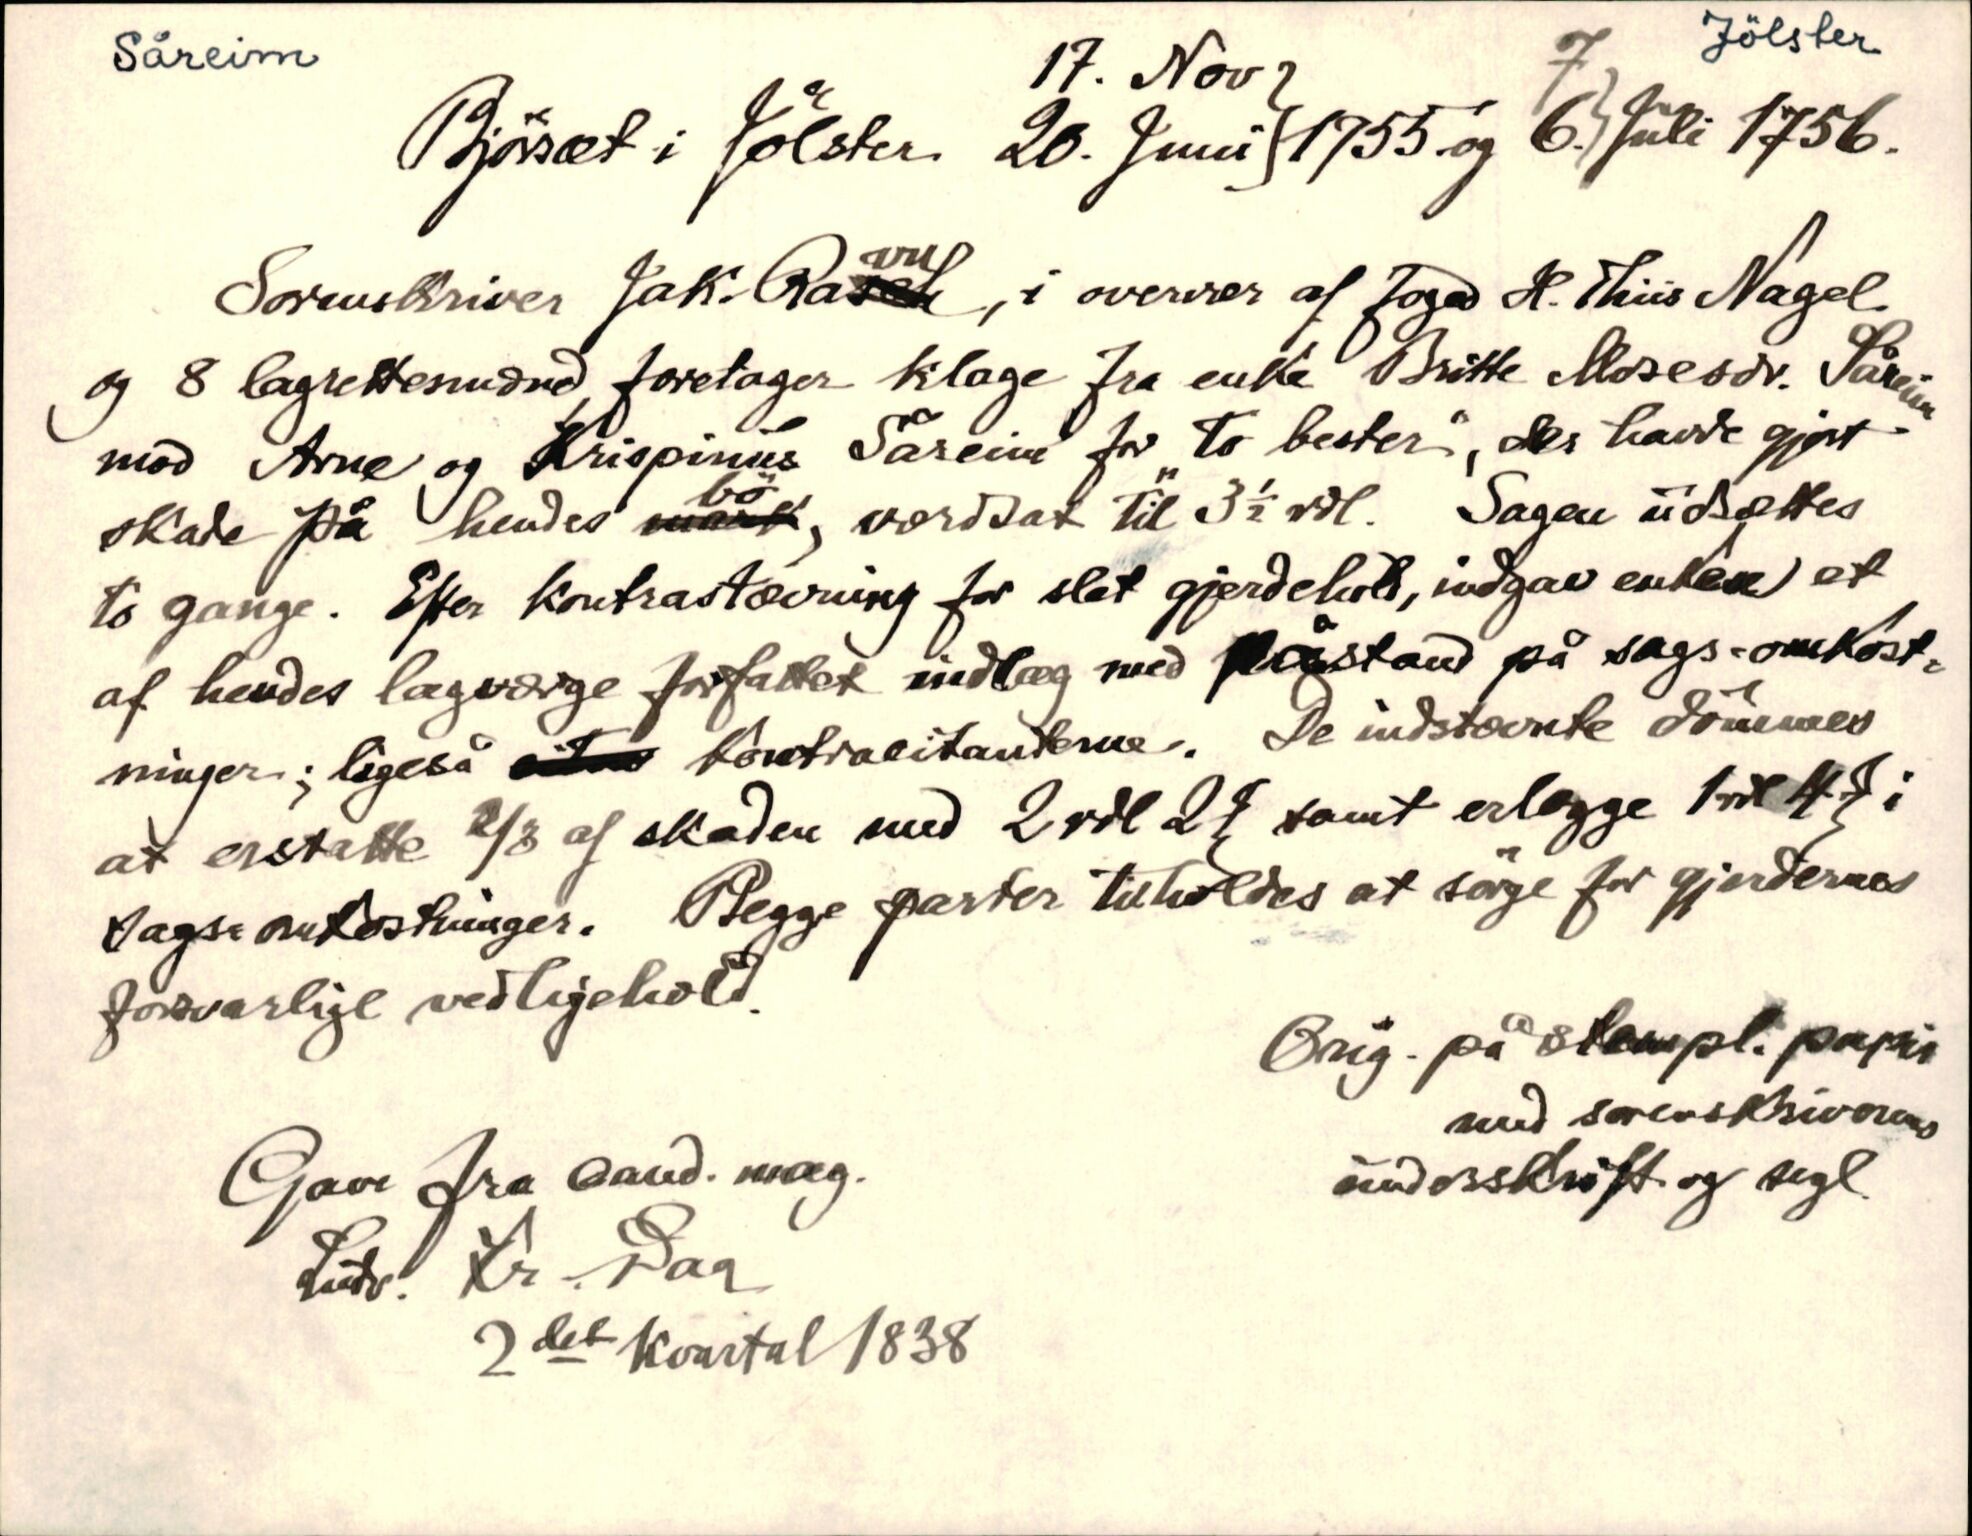 Såreim
Jölster
17. Nov
7
Bjørset i Jölster 20. Junii } 1755. og 6. } Juli 1756.
Sorenskriver Jak. Ravn, i overvær af foged H. Thiis Nagel
og 8 lagrettesmænd, foretager klage fra enke Britte Mosesdr. Såreim
mod Arne og Krispinus Såreim for "to bester", der havde gjort
skade på hendes bö, værdsat til 3½ rdl. Sagen udsættes
to gange. Efter kontrastævning for slet gjerdehold, indgav enken et
af hendes lagværge forfattet indlæg med påstand på sags-omkost-
ninger; ligeså kontracitanterne. De indstævnte dömmes
at erstatte 2/3 af skaden med 2 rdl 2 ꝭ samt erlægge 1 rdl 4 ꝭ i
sags-omkostninger. Begge parter tilholdes at sörge for gjerdernes
forsvarlige vedligehold.
Orig. på stempl. papir
med sorenskriverens
underskrift og segl
Gave fra cand. mag.
Ludv. Kr. Daa
2det kvartal 1838